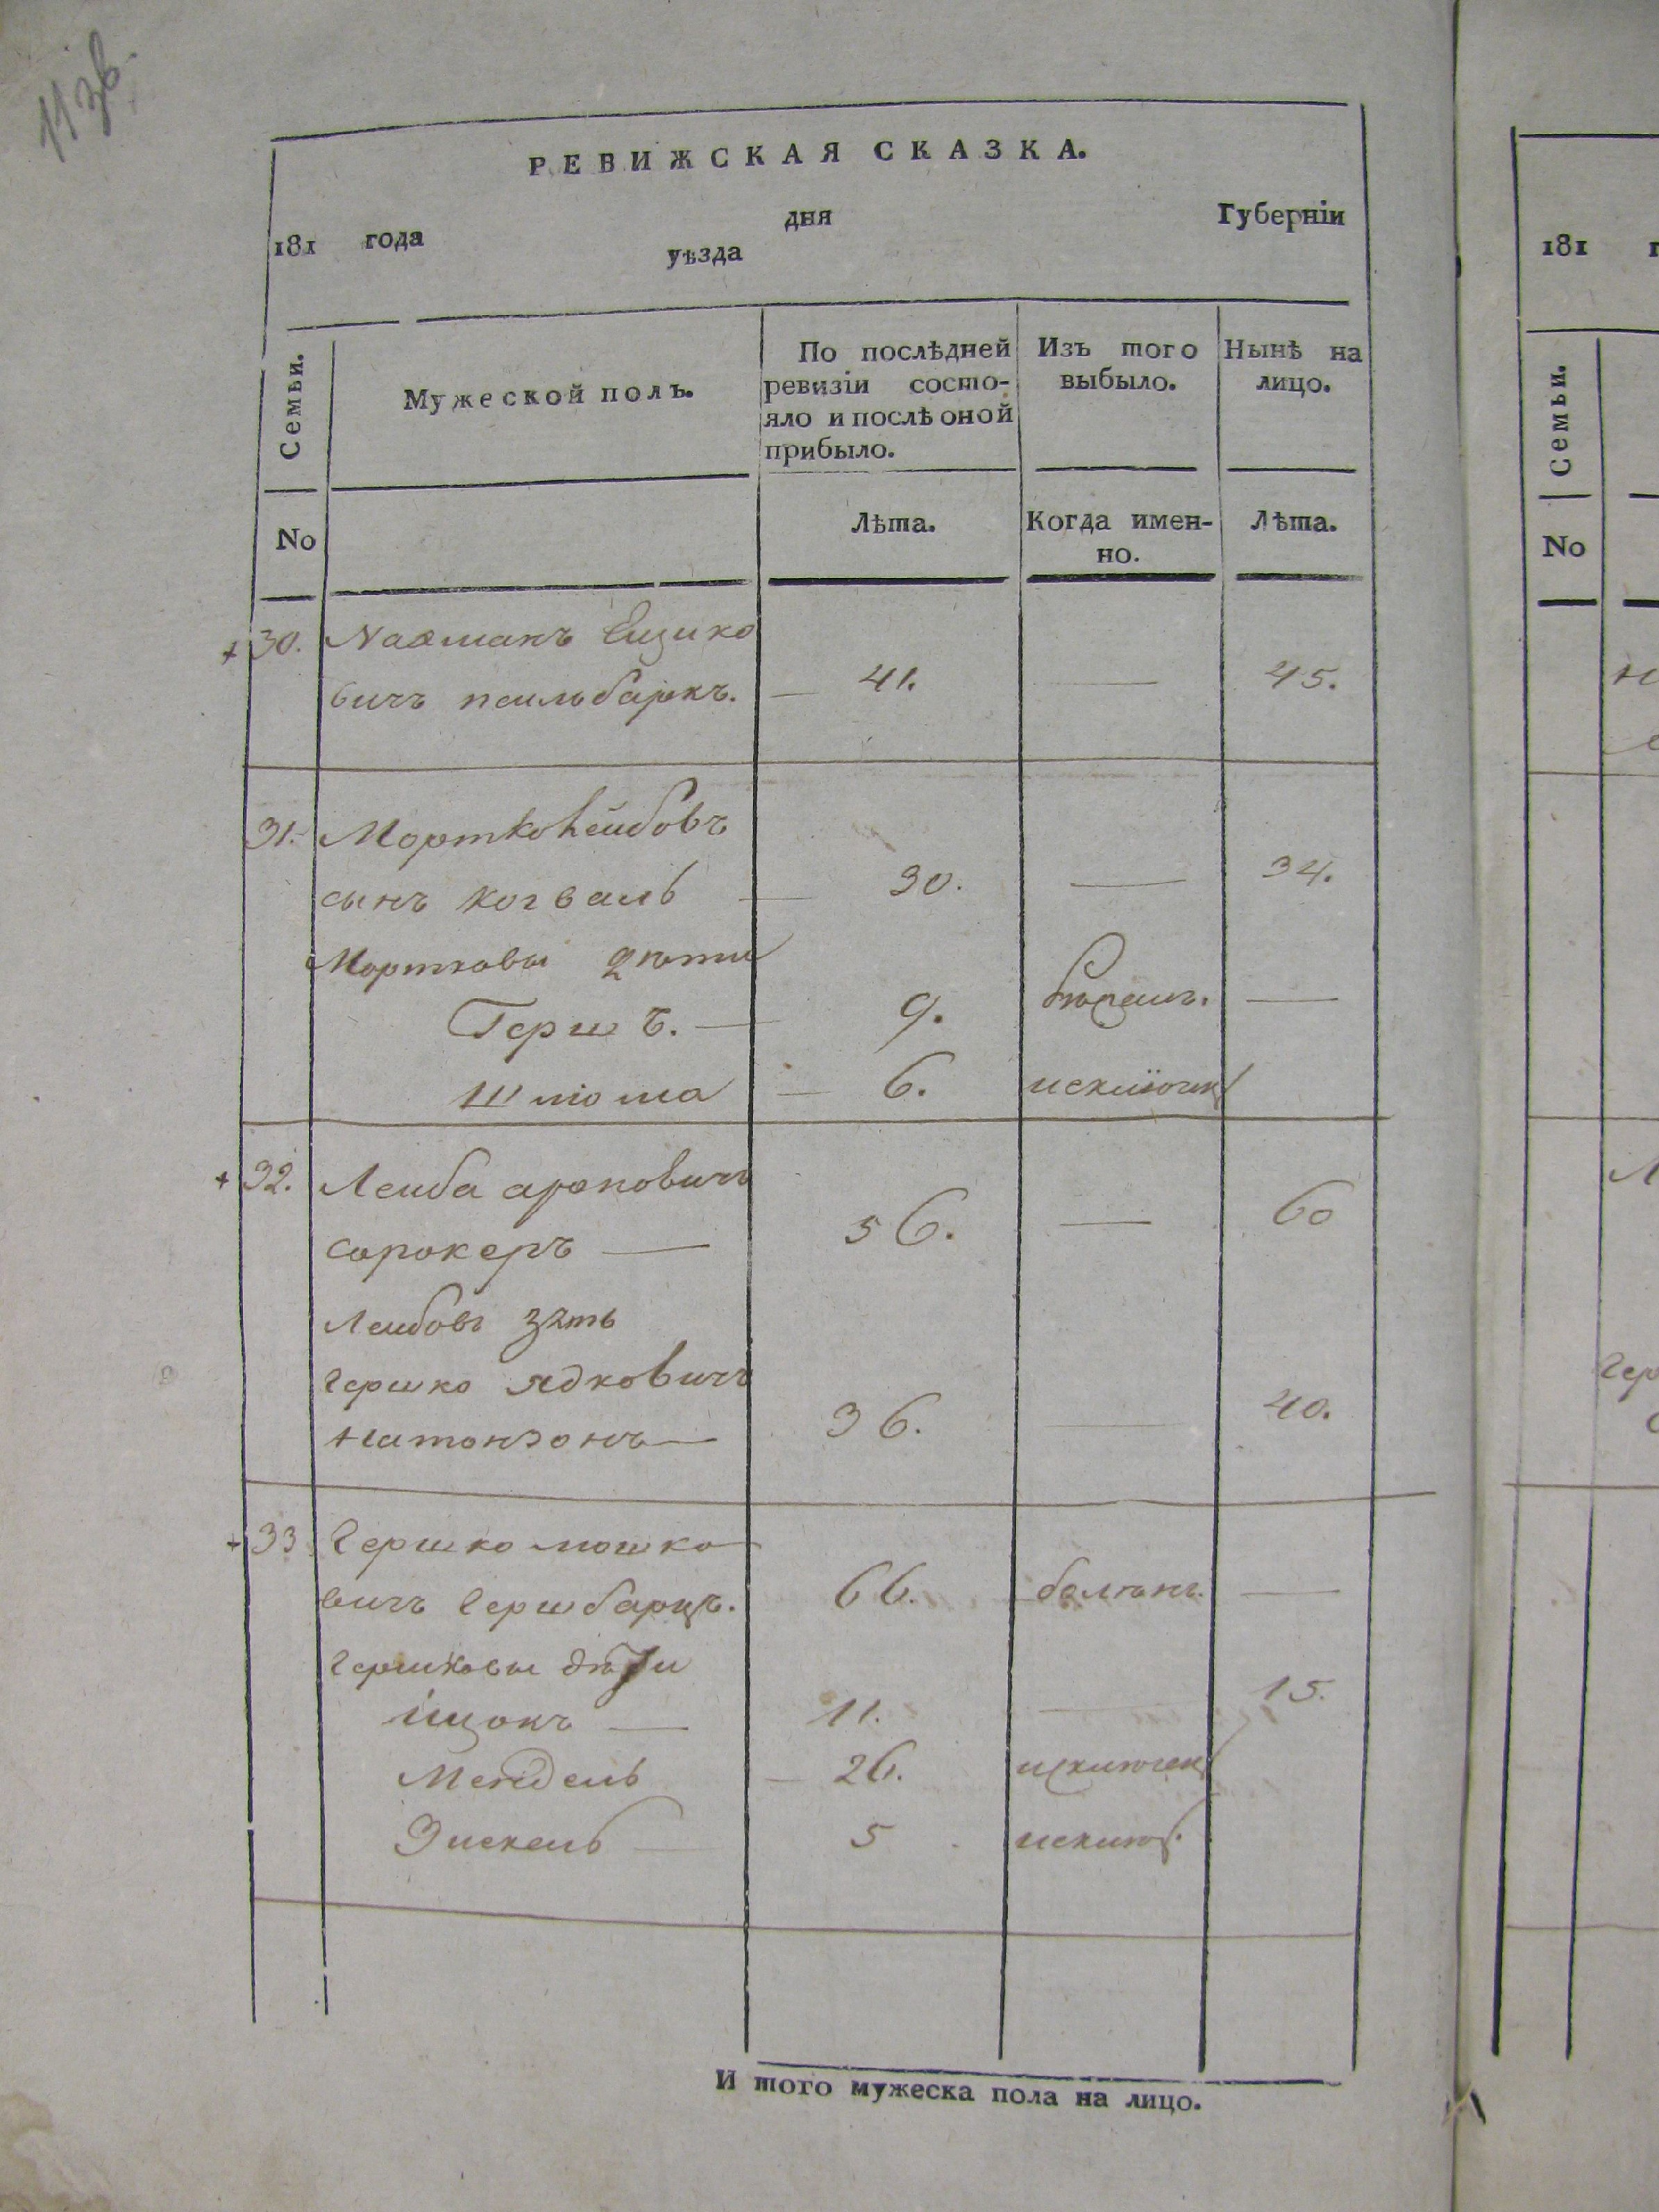 11 зв.
РЕВИЖСКАЯ СКАЗКА.
181 года дня Губерніи
уѣзда
Семьи. Мужеской полъ. По послѣдней ревизіи состояло и послѣ оной прибыло. Изъ того выбыло. Нынѣ на лицо.
No Лѣта. Когда именно. Лѣта.
30. Нахманъ Ицико
вичъ 41. — 45.
31. Мортко Лейбовъ
сынъ Когваль — 30. — 34.
Мортковы дѣти
Гершъ. — 9. —
Шлiома — 6. исключ
32. Леиба ароновичъ
сорокеръ — 56. — 60
Леибовъ зять
Гершко Ядковичъ
Натонзонъ — 36. — 40.
33 Гершко мошко
вичъ Гершбарцъ. 66. —
Гершковы дѣти
Ицокъ — 11. — 15.
Мендель — 26. исключен
5 исключ.
И того мужеска пола на лицо.
181
Семьи.
No
Гер